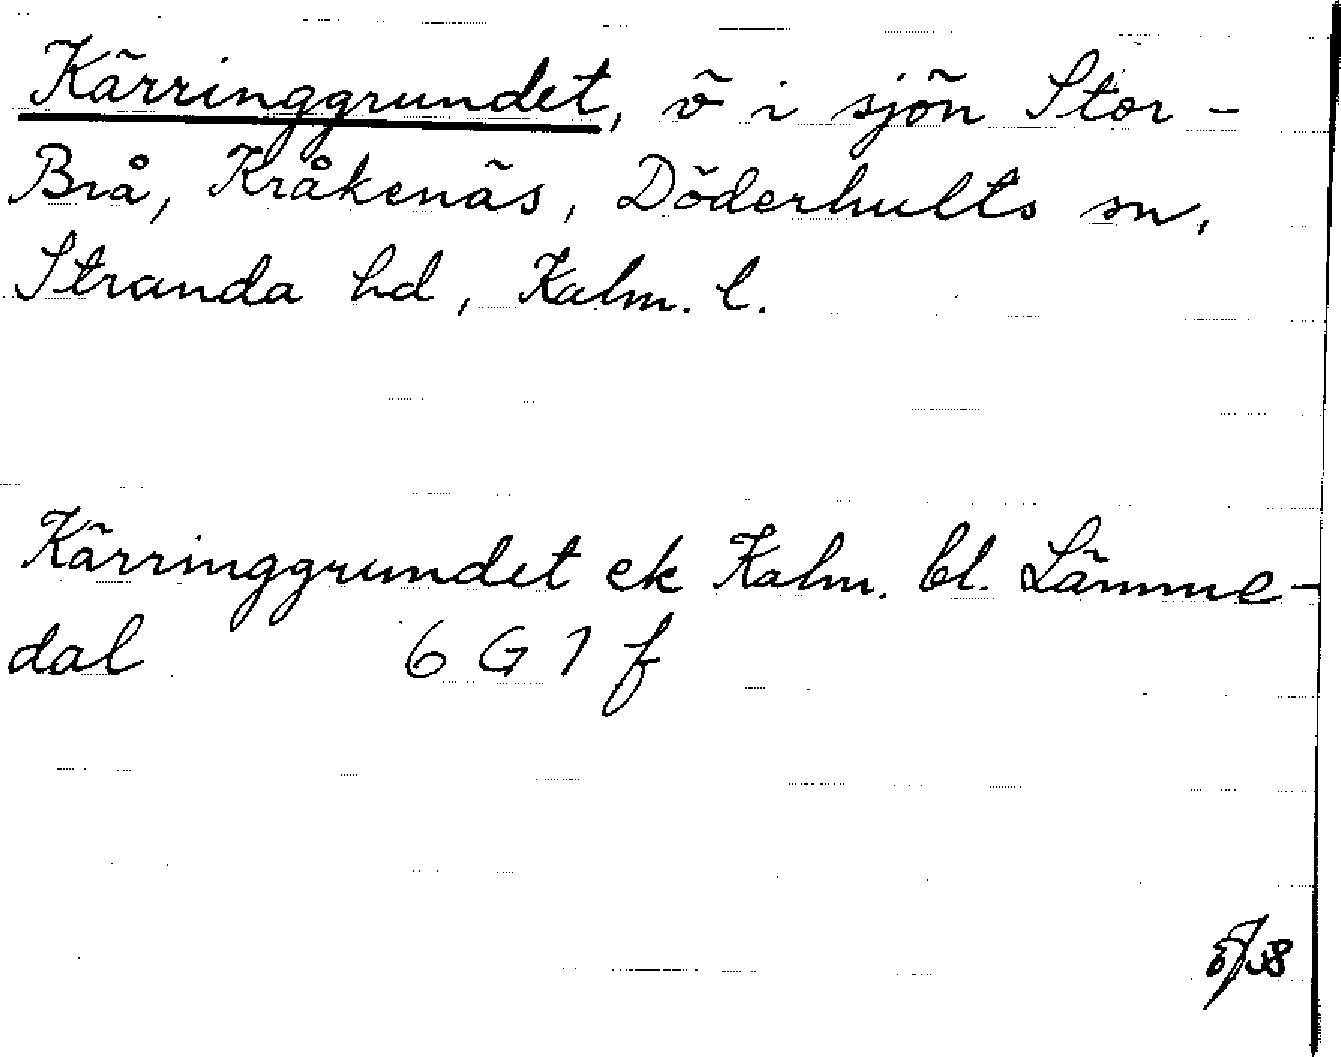 Kärringgrundet, ö i sjön Stor-
Brå, Kråkenäs, Döderhults sn,
Stranda hd, Kalm. l.
Kärringgrundet ek Kalm. bl. Lämme-
dal 6 G 7 f